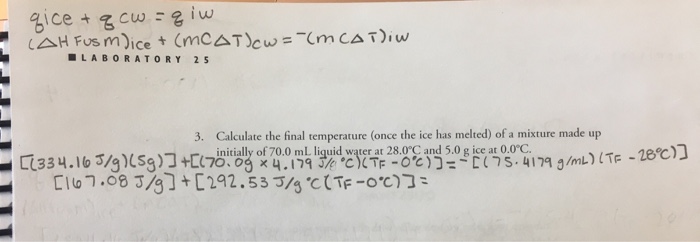 qice + qcw = qiw
(ΔH Fus m)ice + (mCΔT)cw = -(mCΔT)iw
■ LABORATORY 25
3. Calculate the final temperature (once the ice has melted) of a mixture made up
initially of 70.0 mL liquid water at 28.0°C and 5.0 g ice at 0.0°C.
[(334.16 J/g)(5g)] + [(70.0g × 4.179 J/g °C)(TF - 0°C)] = -[(75.4179 g/mL)(TF - 28°C)]
[167.08 J/g] + [292.53 J/g °C(TF - 0°C)] =